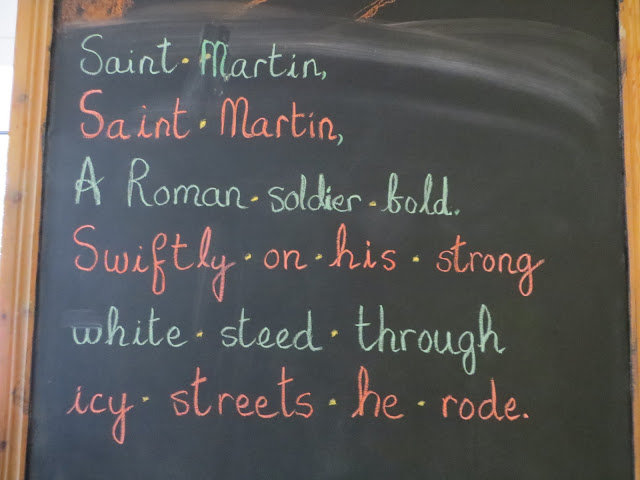 Saint·Martin,
Saint·Martin,
A Roman·soldier·bold.
Swiftly·on·his·strong
white·steed·through
icy·streets·he·rode.